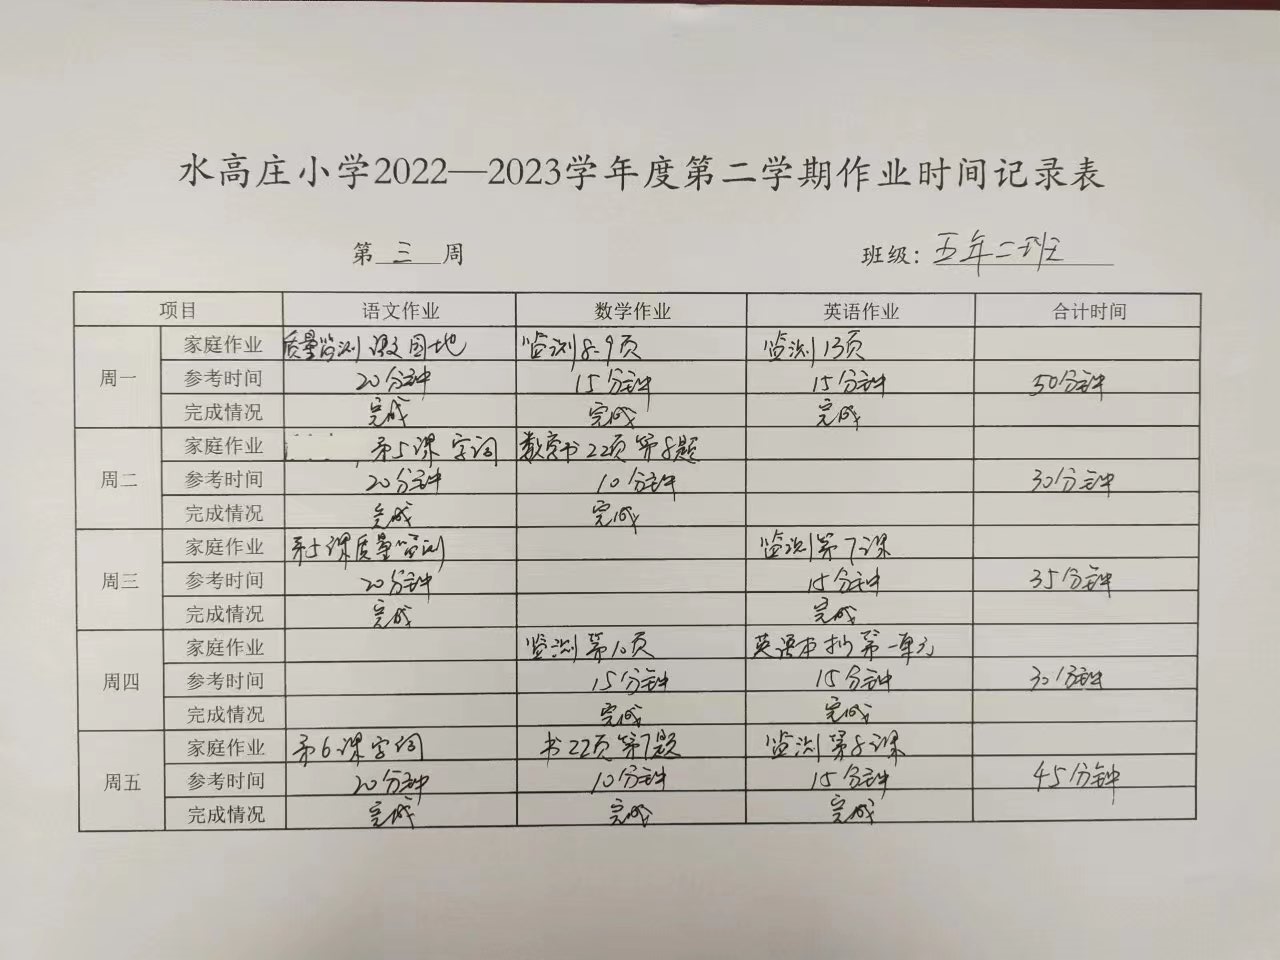 水高庄小学2022—2023学年度第二学期作业时间记录表
第 三 周 班级：五年二班
项目 语文作业 数学作业 英语作业 合计时间
周一 家庭作业 质量监测 语文园地 监测8-9页 监测13页
参考时间 20分钟 15分钟 15分钟 50分钟
完成情况 完成 完成 完成
周二 家庭作业 第5课 字词 数学书22页第8题
参考时间 20分钟 10分钟 30分钟
完成情况 完成 完成
周三 家庭作业 第5课质量监测 监测第7课
参考时间 20分钟 15分钟 35分钟
完成情况 完成 完成
周四 家庭作业 监测第10页 英语书抄第一单元
参考时间 15分钟 15分钟 30分钟
完成情况 完成 完成
周五 家庭作业 第6课字词 书22页第7题 监测第8课
参考时间 20分钟 10分钟 15分钟 45分钟
完成情况 完成 完成 完成